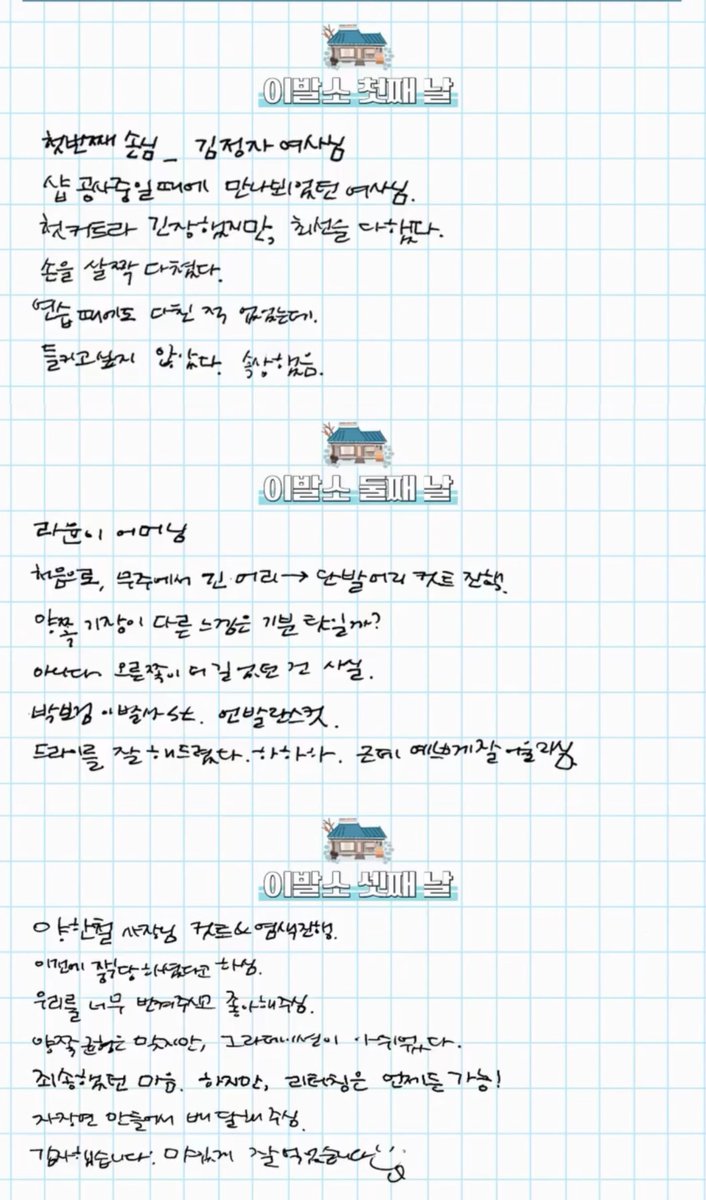 이발소 첫째 날
첫번째 손님_ 김정자 여사님
샵 공사중일때에 만나뵈었던 여사님.
첫커트라 긴장했지만, 최선을 다했다.
손을 살짝 다쳤다.
연습때에도 다친 적 없었는데.
들키고싶지 않았다. 속상했음.
이발소 둘째 날
라윤이 어머님
처음으로, 무주에서 긴 머리→단발머리 컷트 진행.
양쪽 기장이 다른 느낌은 기분 탓일까?
아니다 오른쪽이 더 길었던 건 사실.
박보검 이발사st. 언발란스컷.
드라이를 잘 해드렸다. 하하하. 근데 예쁘게잘 어울리심
이발소 셋째 날
양한철 사장님 컷트&염색진행.
이전에 중식당하셨다고 하심.
우리를 너무 반겨주시고 좋아해주심.
양쪽 균형은 맞지만, 그라데이션이 아쉬웠다.
죄송했던 마음. 하지만, 리터칭은 언제든 가능!
자장면 만들어서 배달해 주심.
감사했습니다. 맛있게 잘먹었습니다